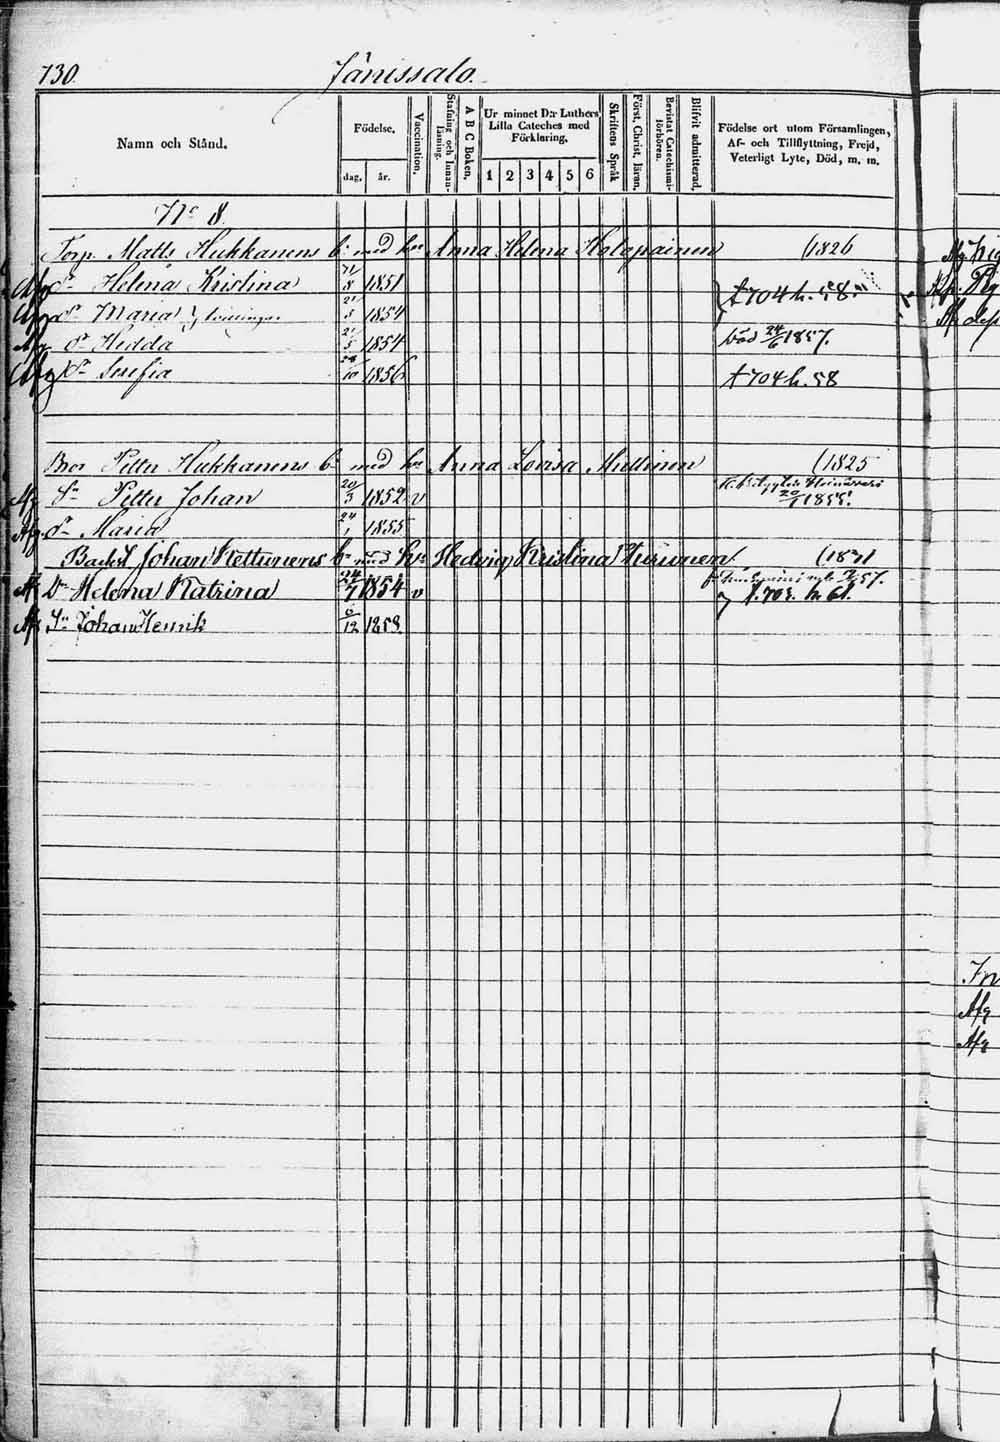 730. Jänissalo.
Namn och Stånd.
Födelse.
dag. år.
Vaccination.
Stafning och Innan-läsning.
A B C Boken.
Ur minnet D:r Luthers Lilla Cateches med Förklaring.
1 2 3 4 5 6
Skriftens Språk
Först. Christ. läran.
Bevistat Catechismi-förhören.
Blifvit admitterad.
Födelse ort utom Församlingen,
Af- och Tillflyttning, Frejd,
Veterligt Lyte, Död, m. m.
No 8.
Torp. Matts Hukkanens b. med hu Anna Helena Holopainen (1826
Afg Dr Helena Kristina 8 1851
Dr Maria } tvillingar 21/5 1854 t 704 h. 58.
Dr Hedda 21/5 1854 död 24/6 1857.
Afg Dr Serefia /10 1856 t 704 h. 58
Bror Petter Hukkanens b. med hu Anna Lovisa Muttinen (1825
Afg Sn Petter Johan 20/3 1852 v
1855.
Afg. Dr Maria 24/1 1855
Backst Johan Kettunens bn med hu Hedvig Kristina Turunen (1831
Af Dr Helena Katrina 24/7 1854 v 57.
t. 703. h. 61.
Af Sn Johan Henrik 6/12 1858.
Afg
Afg